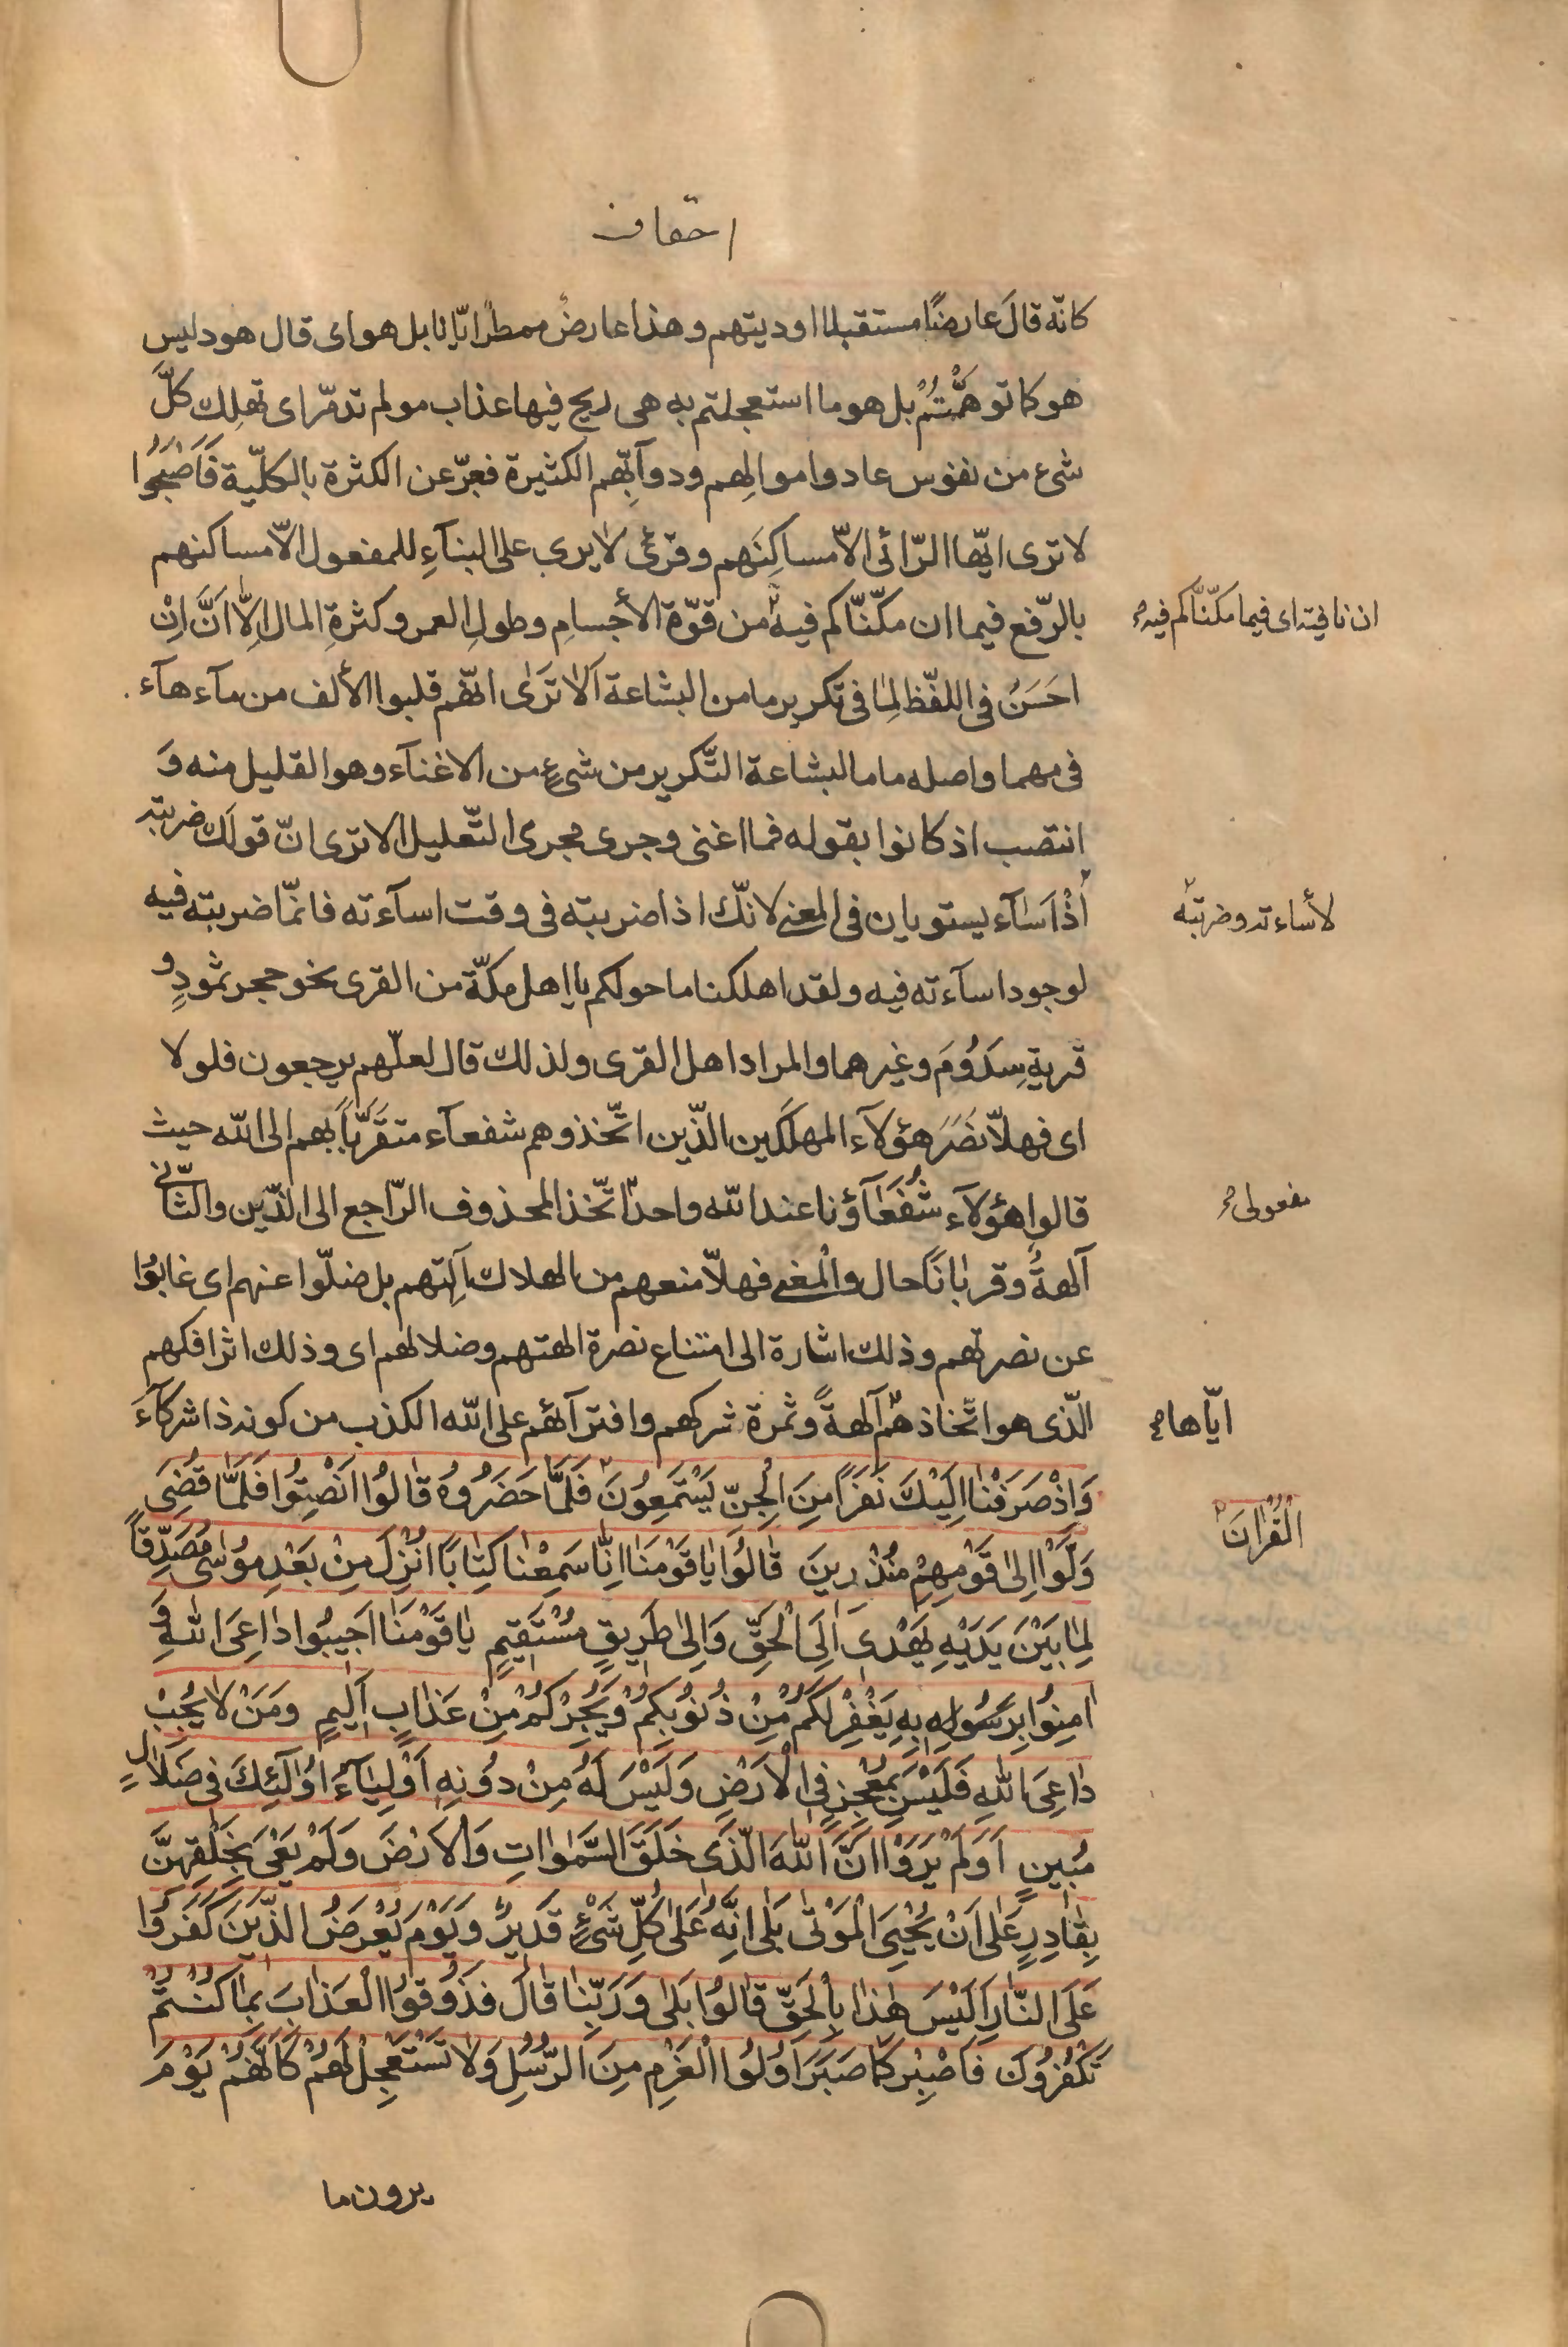 احقاف
كانّه قالَ عارضًا مستقبلا اوديتهم وهذا عارضٌ ممطرٌ ايّانا بل هو اى قال هود ليس
هو كما توهّمْتُمْ بل هو ما استعجلتم به هى ريح فيها عذاب مولم تدمّر اى تهلك كلَّ
شىء من نفوس عاد واموالهم ودوآبّهم الكثيرة فعبّر عن الكثرة بالكلّية فَاَصْبَحُوا
لا ترى ايّها الرّائى الاّ مساكِنَهم وقرئ لا يرى على البنآءِ للمفعول الاّ مساكنهم
بالرّفع فيما ان مكّنّاكم فيه من قوّة الأجسامِ وطولِ العمر وكثرةِ المال اِلاّ اَنَّ اِنْ
ان نافية اى فيما مكّنّاكم فيه
احَسَنُ فى اللفّظ لِمٰا فى تكرير ما من البشاعة اَلاٰ تَرٰى انّهم قلبوا الألف من مآء هآء
فى مهما واصله ماما لبشاعة التّكرير من شىءٍ من الاغنآء وهو القليل منه وَ
انتصب اذ كانوا بقوله فما اغنى وجرى مجرى التّعليل الا ترى انّ قولك ضربته
اذْ اَسٰآء يستويان فى المعنى لانّك اذا ضربته فى وقت اسآءته فانّما ضربته فيه
لأساءته وضربته
لوجود اسآءته فيه ولقد اهلكنا ما حولكم يا اهل مكّة من القرى نحو حجر ثمودِ و
قرية سِدَوُمَ وغيرهما والمراد اهل القرى ولذلك قال لعلّهم يرجعون فلولا
اى فهلاّ نَصَرَ هؤلآء المهلَكين الّذين اتّخذوهم شفعآء متقَرَّباً بهم الى الله حيث
قالوا هؤلآء شُفَعٰآؤنا عند الله واحد اتّخذ المحذوف الرّاجع الى الّذين والثّانى
مفعولى
آلهةً وقرباناً حال والمعنى فهلاّ منعهم من الهلاك آلهتهم بل ضلّوا عنهم اى غابوُا
عن نصرتهم وذلك اشارة الى امتناع نصرة الهتهم وضلالهم اى وذلك اثر افكهم
الّذى هو اتّخاذهم آلهةً وثمرة شركهم وافترآئهم على الله الكذب من كونه ذا شركآءَ
ايّاها
وَاِذْ صَرَفْنٰا اِلَيْكَ نَفَرًا مِنَ الْجِنِّ يَسْتَمِعوُنَ فَلَمّٰا حَضَرُوهُ قٰالُوا اَنْصِتُوا فَلَمّٰا قُضِىَ
الْقُرْاٰنَ
وَلَّوْا اِلىٰ قَوْمِهِمْ مُنْذِرينَ قٰالُوا يٰا قَوْمَنٰا اِنّٰا سَمِعْنٰا كِتٰابًا اُنْزِلَ مِنْ بَعْدِ مُوسٰى مُصَدِّقًا
لِمٰا بَيْنَ يَدَيْهِ يَهْدى اِلَى الْحَقِّ وَاِلىٰ طَريقٍ مُسْتَقيمٍ يٰا قَوْمَنٰا اَجيبُوا دٰاعِىَ اللهِ وَ
اٰمِنُوا بِرَسُولِهِ بِهِ يَغْفِرْ لَكُمْ مِنْ ذُنُوبِكُمْ وَيُجِرْكُمْ مِنْ عَذٰابٍ اَليمٍ وَمَنْ لاٰ يُجِبْ
دٰاعِىَ اللهِ فَلَيْسَ بِمُعْجِزٍ فِى الْاَرْضِ وَلَيْسَ لَهُ مِنْ دُونِهِ اَوْلِيٰآءُ اوُلٰئِكَ فى ضَلاٰلٍ
مُبينٍ اَوَلَمْ يَرَوْا اَنَّ اللهَ الَّذى خَلَقَ السَّمٰوٰاتِ وَالْاَرْضَ وَلَمْ يَعْىَ بِخَلْقِهِنَّ
بِقٰادِرٍ عَلىٰ اَنْ يُحْيِىَ الْمَوْتٰى بَلىٰ اِنَّهُ عَلىٰ كُلِّ شَىْءٍ قَديرٌ وَيَوْمَ يُعْرَضُ الَّذينَ كَفَرُوا
عَلَى النّٰارِ اَلَيْسَ هٰذٰا بِالْحَقِّ قٰالُوا بَلىٰ وَرَبِّنٰا قٰالَ فَذُوقُوا الْعَذٰابَ بِمٰا كُنْتُمْ
تَكْفُرُونَ فَاصْبِرْ كَمٰا صَبَرَ اُولُوا الْعَزْمِ مِنَ الرُّسُلِ وَلاٰ تَسْتَعْجِلْ لَهُمْ كَاَنَّهُمْ يَوْمَ
يرون ما